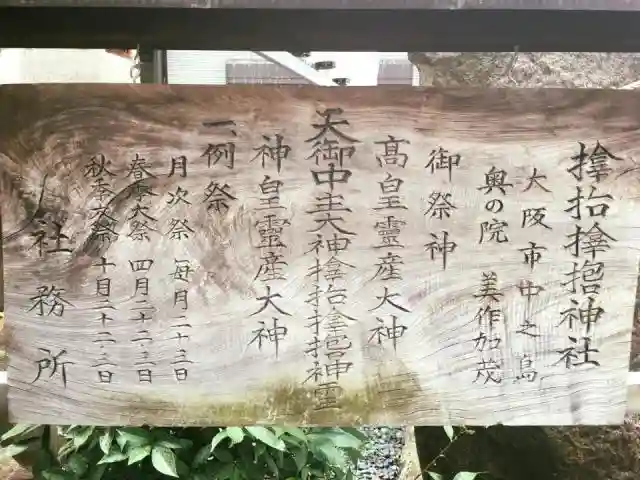 撿抬撿挹神社
大阪市中之島
奥の院 美作加茂
御祭神
高皇靈産大神
天御中主大神撿抬撿挹神靈
神皇靈産大神
一、例祭
月次祭 毎月二十三日
春季大祭 四月二十二・二三日
秋季大祭 十月二十二・二三日
社務所